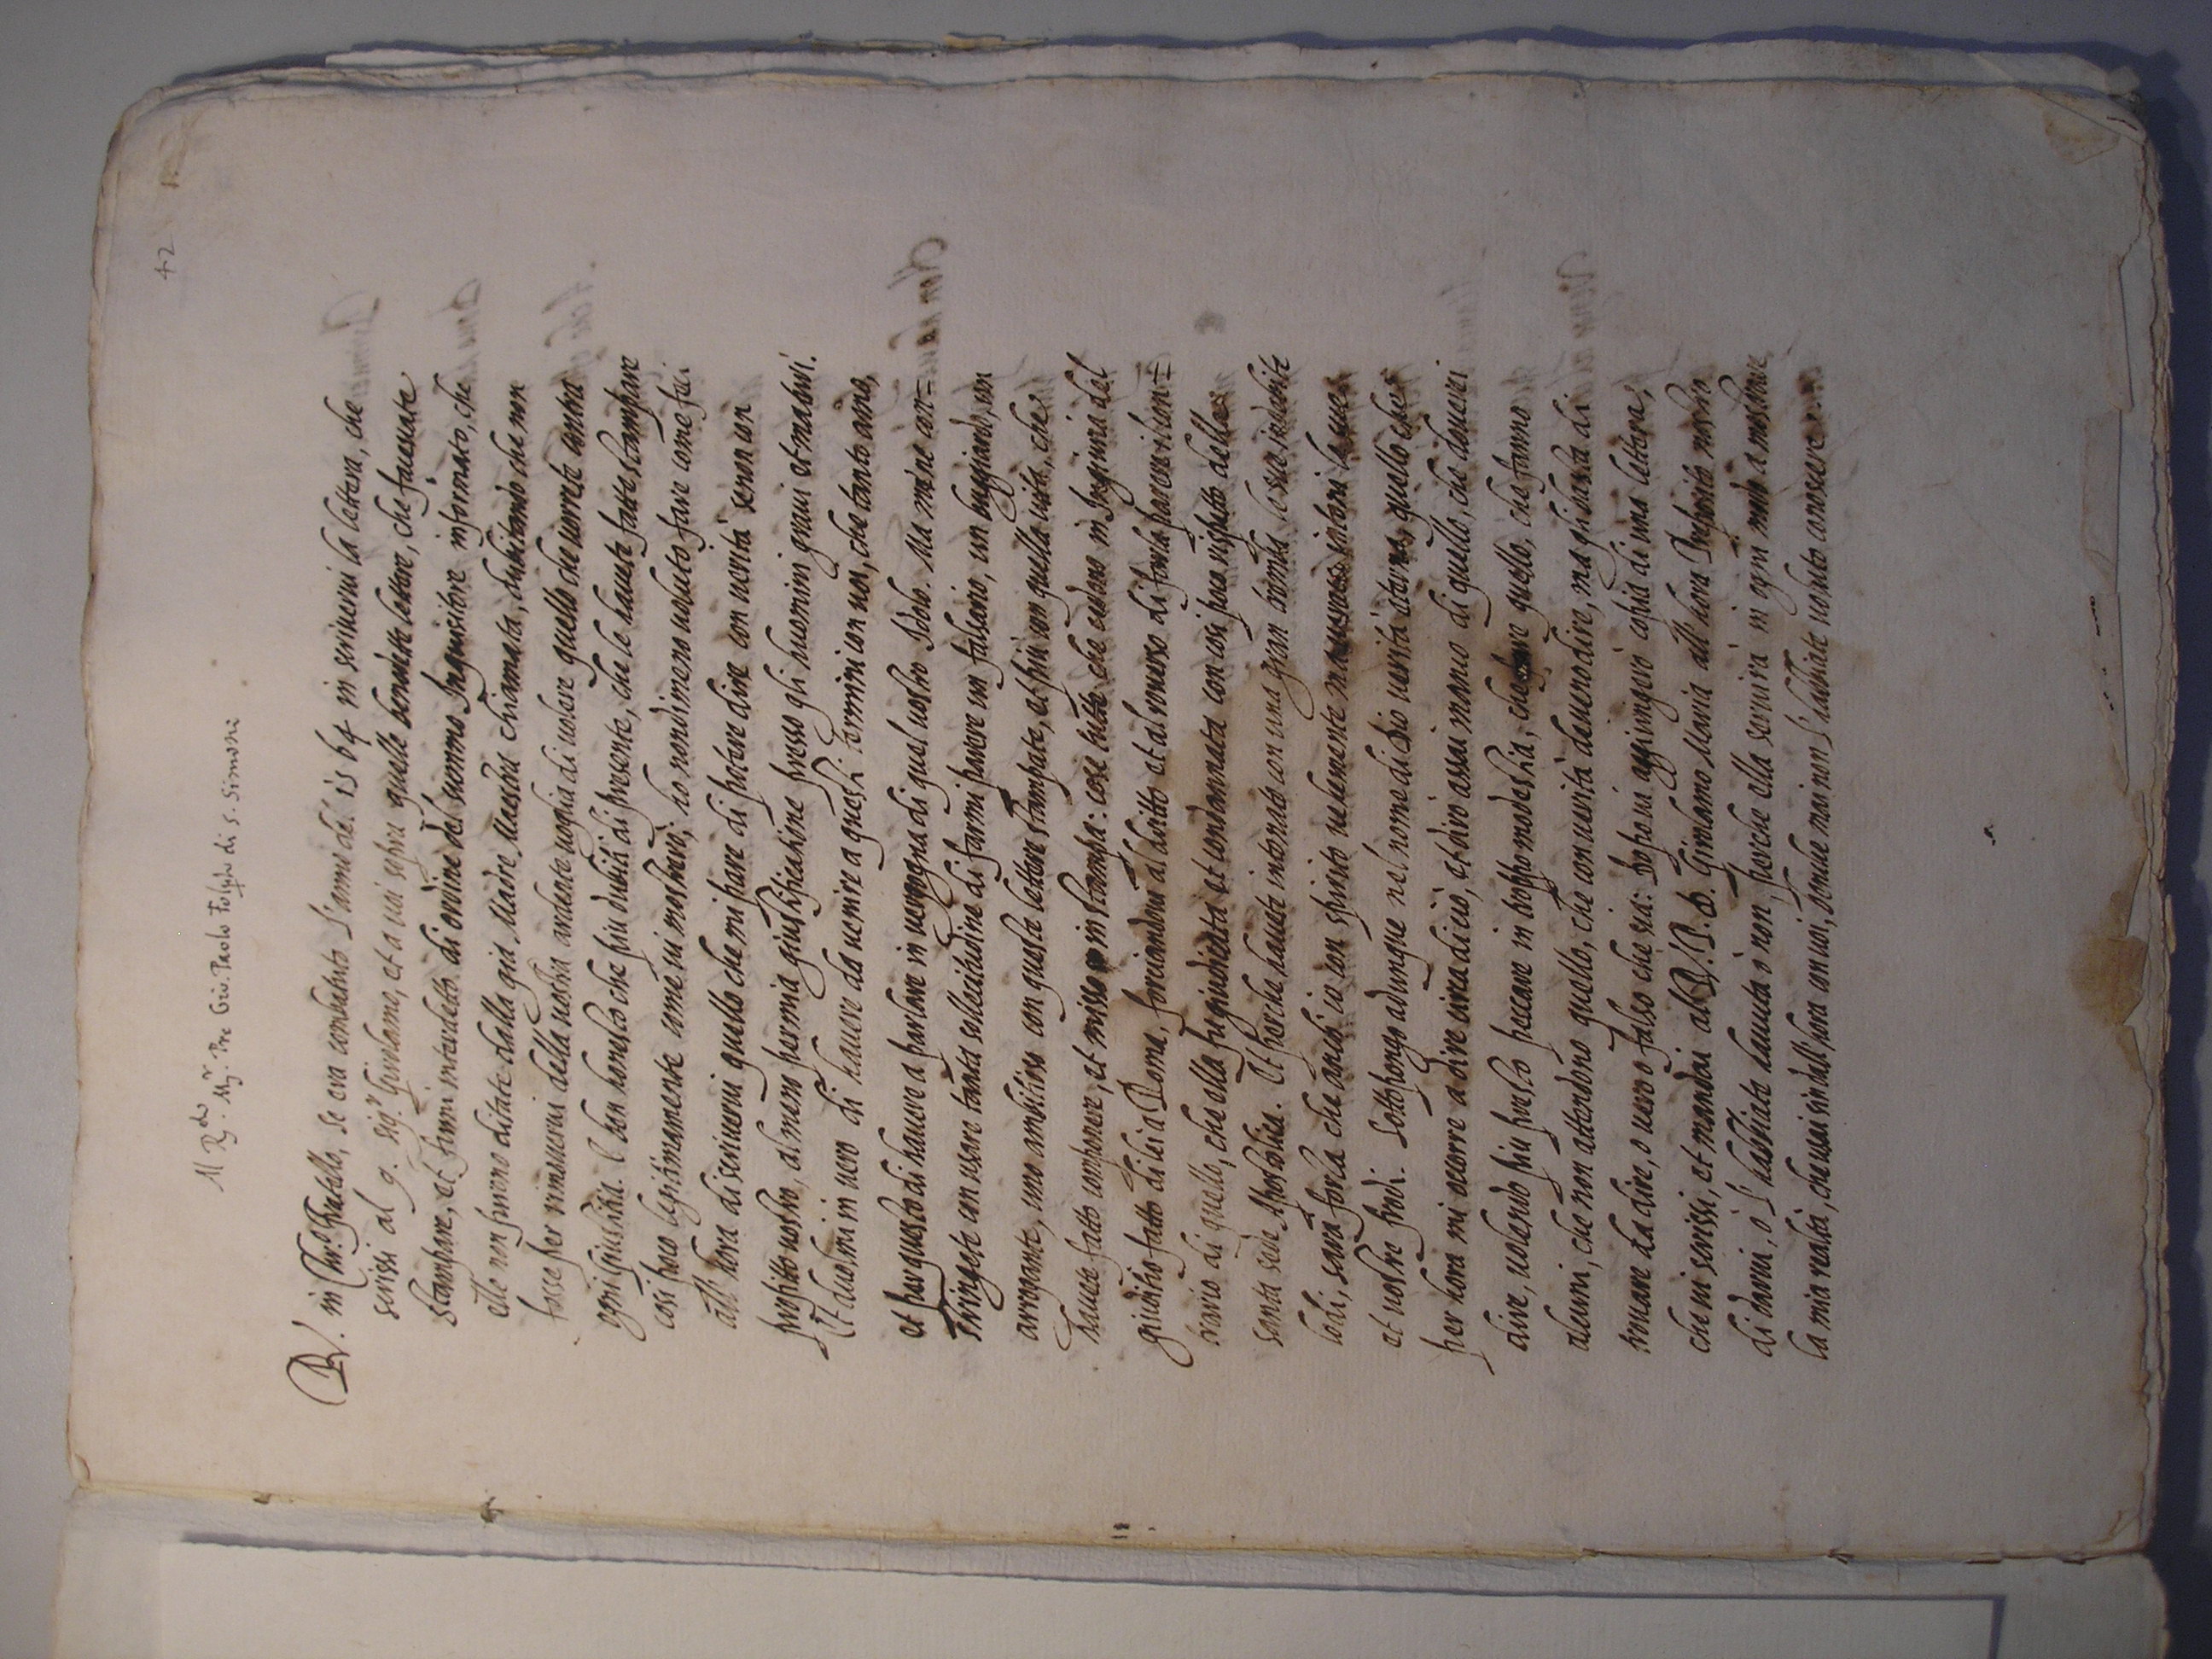 42
M Rdo Mr. Pre Gio. Paolo Folpho di S. Simoni
R. in Chro fratello, se era combatuto l'anno del 1564 in scriverui la lettera, che
scrissi al q. sigr. Girolamo, et a uoi sopra quelle benedette lettere, che faceuate
stampare, et fermi interdetto di ordine del summo Inquisitore informato, che
elle non furono ditate dalla già Madre Maestra chiamata, dubitando che non
fosse per rimouerui della uostra ardente uoglia di uolere quello che uorreste contra
ogni giustitia. E ben honesto che piu dubiti di presente, che le hauete fatte stampare
cosi poco legitimamente come ui mostrerò; ho nondimeno uoluto fare come feci
all' hora di scriuerui quello che mi pare di potere dire con uerità senon con
profitto uostro, almeno per mia giustificatione presso gli huomini graui et maturi.
Et duolmi in uero di hauere da uenire a questi termini con uoi, che tanto amo,
et per questo di hauere a parlare in uergogna di quel uostro Idolo. Ma me ne con=
stringete con usare tanta sollecitudine di farmi parere un falsario, un buggiardo, un
arrogante, uno ambitioso con queste lettere stampate, et piu con quella uita, che
hauete fatto componere, et misso in stampa: cose tutte che cedono in Ingiuria del
giuditio fatto di lei a Roma, forciandoui al diritto et al rouerso di farla parere il con=
trario di quello, che ella fu giudicata et condannata con cosi poco rispetto della
santa sede Apostolica. Et perche hauete intonato con una gran tromba le sue indebite
lodi, sarà forza che anch' io con spirito uehemente intoni le sue
et uostre frodi. Sottopongo adunque nel nome di Dio uerità quello che
per hora mi occorre a dire circa di ciò, et dirò assai manco di quello, che douerei
dire, uolendo piu presto peccare in troppo modestia, che quello, che fanno
alcuni, che non attendono quello, che con uerità deueno dire, ma gli basta di
trouare da dire, o uero o falso che sia: Dopo ui aggiungerò copia di una lettera,
che ui scrissi, et mandai al R. P. D. Girolamo Maria all' hora Preposito nostro
di costui, ò l' habbiate hauuta ò non, perche ella seruirà in ogni modo a mostrare
la mia realtà, che usai sin dall' hora con uoi, benche mai non l' habbiate uoluto conoscere.